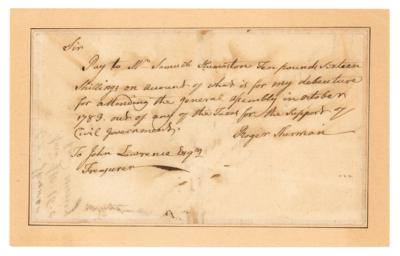 Sir
Pay to Mr. Samuel Humiston Ten pounds Sixteen
Shillings on account of what is for my debenture
for attending the General Assembly in October
1783. out of any of the Taxes for the Support of
Civil Government.
Roger Sherman
To John Lawrence Esqr
Treasurer